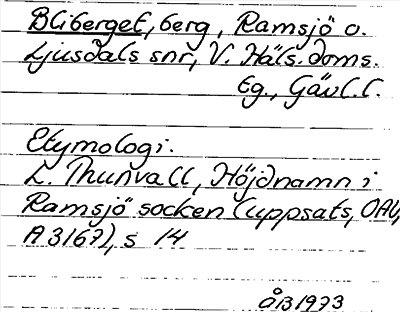 Bliberget, berg, Ramsjö o.
Ljusdals snr, V. Häls. doms.
tg., Gävl. l.
Etymologi.
L. Thunvall, Höjdnamn i
Ramsjö socken (uppsats, OAU,
A 3167), s 14
ÅB 1973